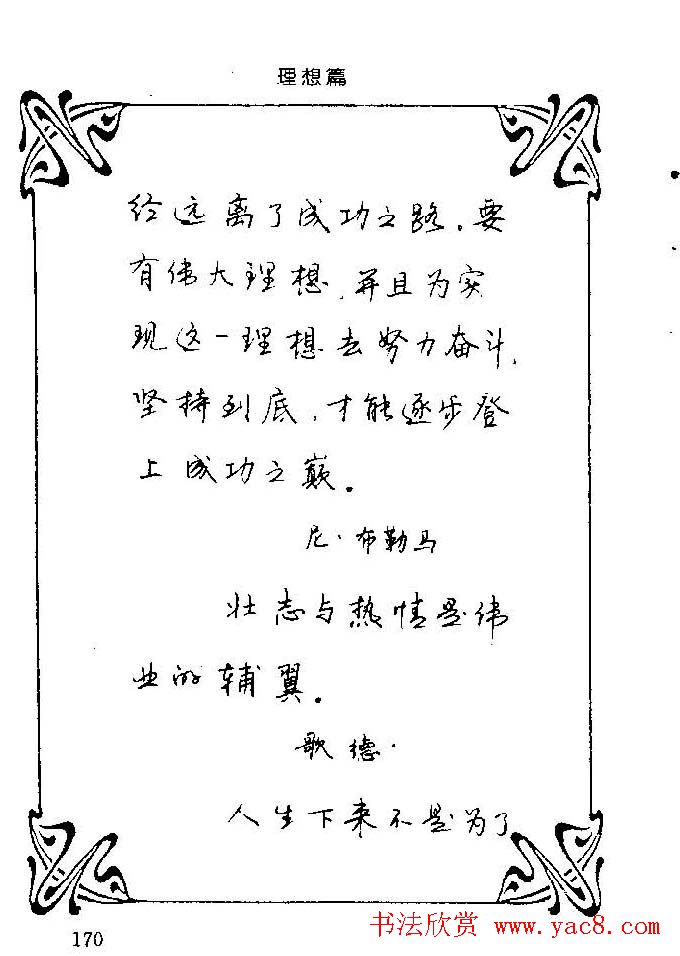 理想篇
经远离了成功之路，要
有伟大理想，并且为实
现这一理想去努力奋斗，
坚持到底，才能逐步登
上成功之巅。
尼·布勒马
壮志与热情是伟
业的辅翼。
歌德·
人生下来不是为了
170
书法欣赏 www.yac8.com